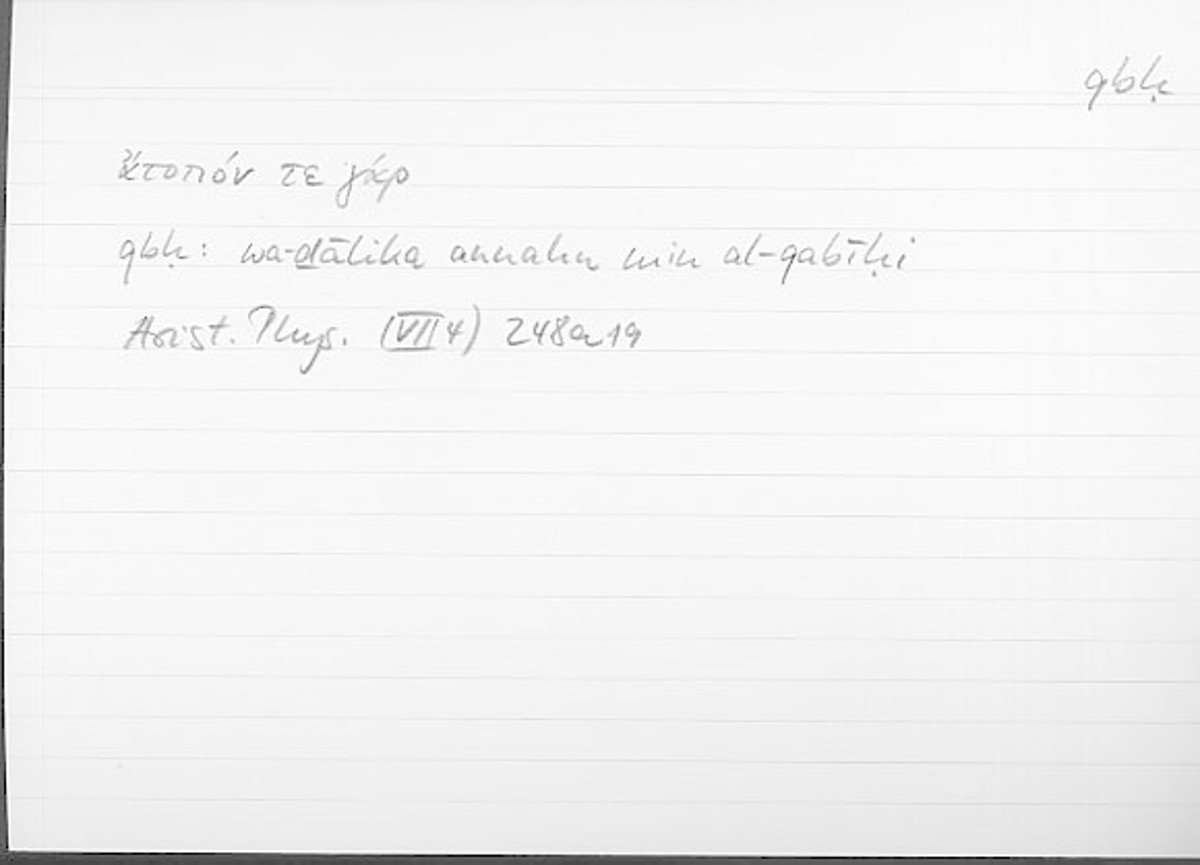 qbḥ
ἄτοπόν τε γάρ
qbḥ: wa-ḏālika annahu min al-qabīḥi
Arist. Phys. (VII 4) 248a19